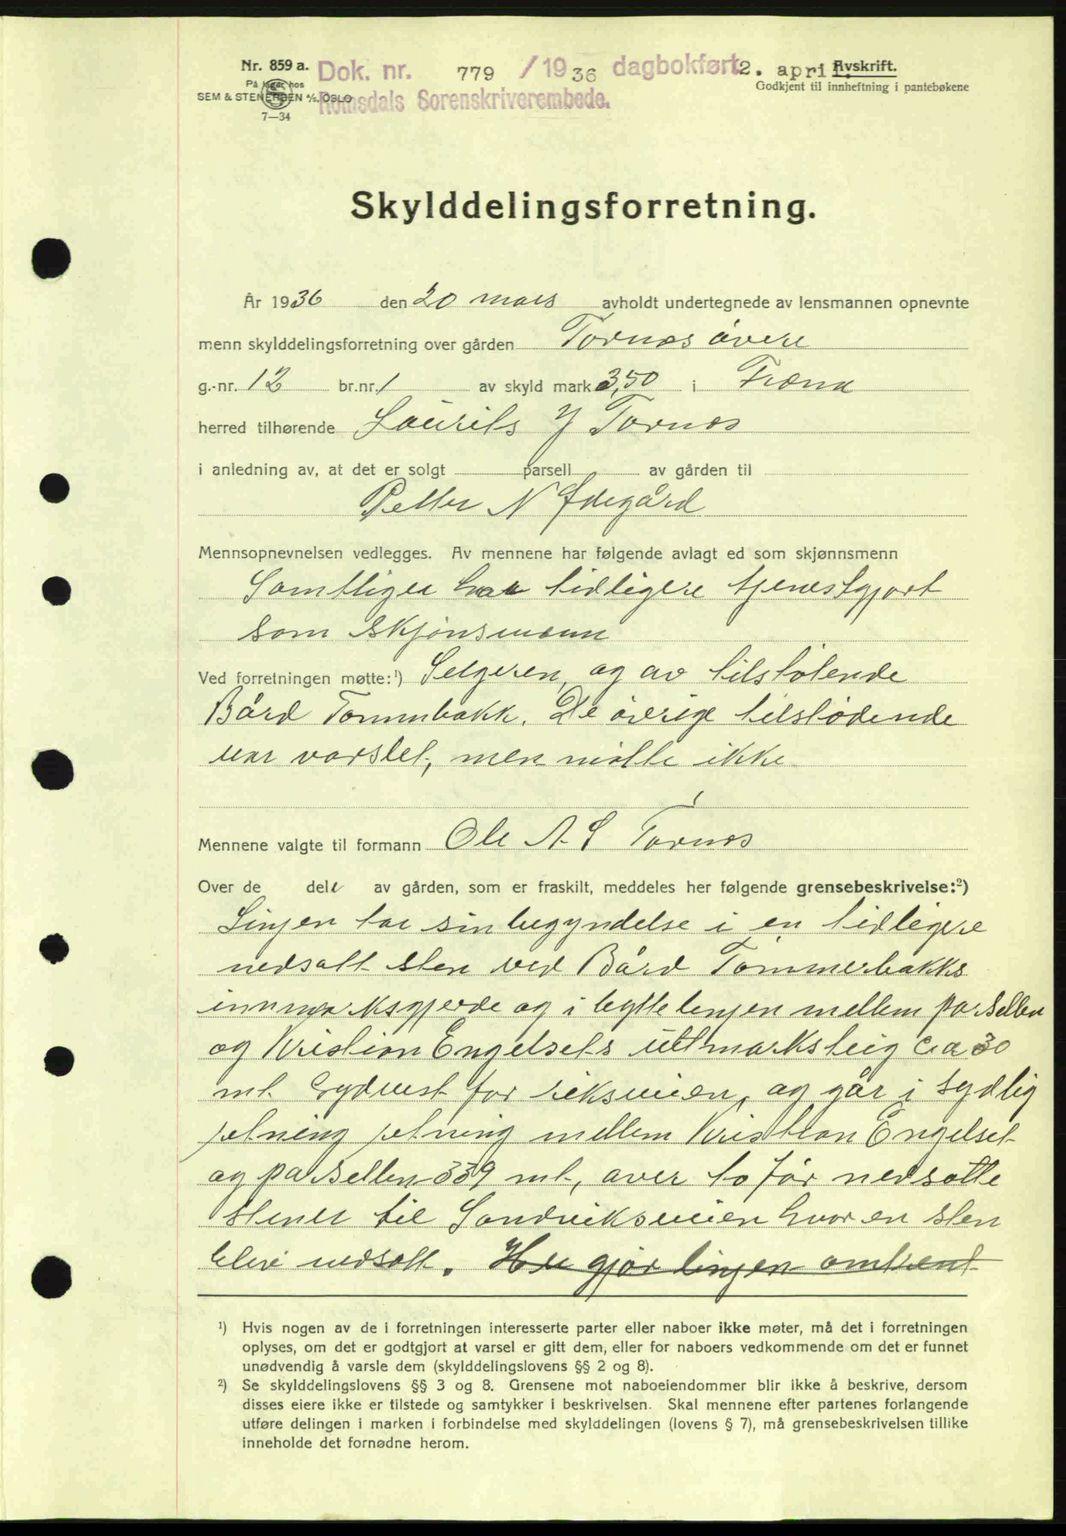 Nr. 859 a. Dok. nr. 779 / 1936 dagbokført 2. april. Avskrift.
På lager hos
SEM & STENERSEN A/S, OSLO
Godkjent til innheftning i pantebøkene
Romsdals Sorenskriverembede.
7—34
Skylddelingsforretning.
År 1936 den 20 mars avholdt undertegnede av lensmannen opnevnte
menn skylddelingsforretning over gården Tornes øvere
g.-nr. 12 br.nr. 1 av skyld mark 3,50 i Fræna
herred tilhørende Laurits J Tornes
i anledning av, at det er solgt parsell av gården til
Petter N Ødegård
Mennsopnevnelsen vedlegges. Av mennene har følgende avlagt ed som skjønnsmenn
Samtliger har tidligere tjenestgjort
som skjønsmenn
Ved forretningen møtte:¹) Selgeren, og av tilstøtende
Bård Tommbakk. De øvrige tilstødende
var varslet, men møtte ikke
Mennene valgte til formann Ole A. S Tornes
Over de dele av gården, som er fraskilt, meddeles her følgende grensebeskrivelse:²)
Linjen tar sin begyndelse i en tidligere
nedsatt sten ved Bård Tommerbakks
innmarksgjerde og i byttelinjen mellem parsellen
og Kristian Engelsets uttmarksteig ca 30
mt. Sydvest for riksveien, og går i sydlig
retning retning mellem Kristian Engelset
og parsellen 339 mt, over to før nedsatte
stener til Sandviksveien hvor en sten
blev nedsatt. Her gjør linjen omtrent
¹) Hvis nogen av de i forretningen interesserte parter eller naboer ikke møter, må det i forretningen
oplyses, om det er godtgjort at varsel er gitt dem, eller for naboers vedkommende om det er funnet
unødvendig å varsle dem (skylddelingslovens §§ 2 og 8).
²) Se skylddelingslovens §§ 3 og 8. Grensene mot naboeiendommer blir ikke å beskrive, dersom
disses eiere ikke er tilstede og samtykker i beskrivelsen. Skal mennene efter partenes forlangende
utføre delingen i marken i forbindelse med skylddelingen (lovens § 7), må grensebeskrivelsen tillike
inneholde det fornødne herom.